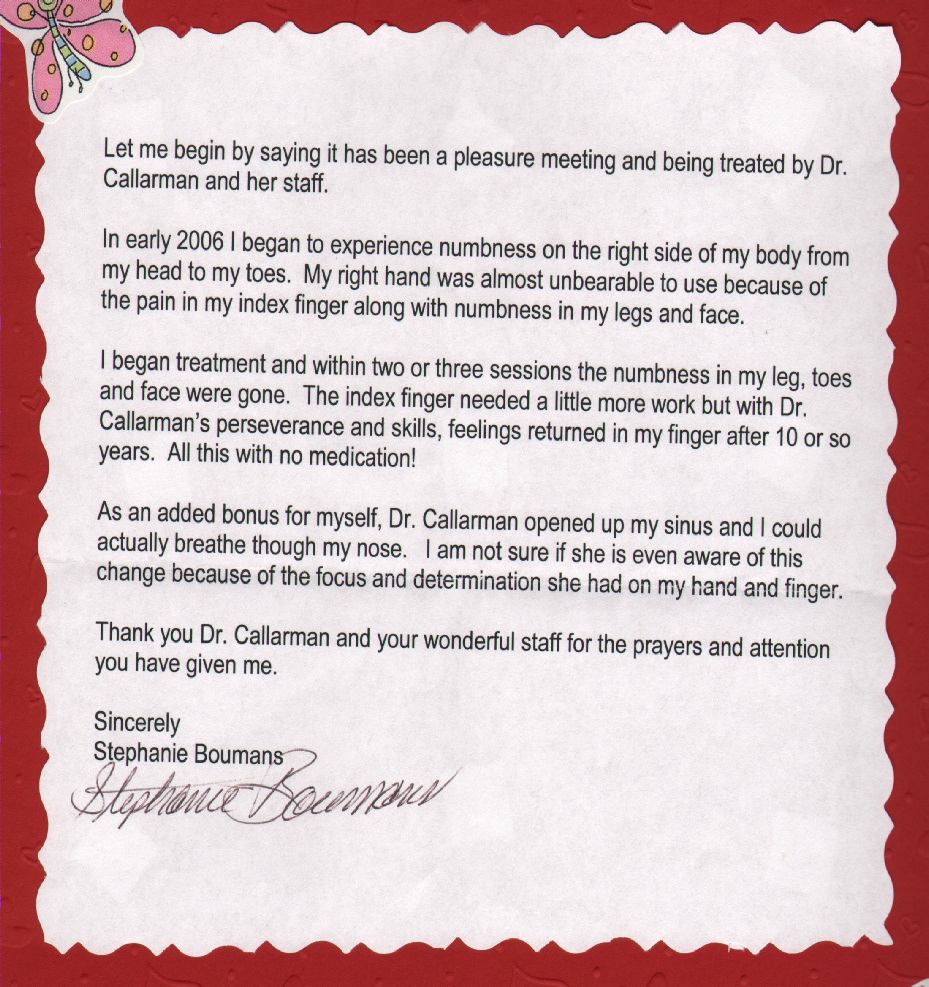 Let me begin by saying it has been a pleasure meeting and being treated by Dr.
Callarman and her staff.
In early 2006 I began to experience numbness on the right side of my body from
my head to my toes.  My right hand was almost unbearable to use because of
the pain in my index finger along with numbness in my legs and face.
I began treatment and within two or three sessions the numbness in my leg, toes
and face were gone.  The index finger needed a little more work but with Dr.
Callarman's perseverance and skills, feelings returned in my finger after 10 or so
years.  All this with no medication!
As an added bonus for myself, Dr. Callarman opened up my sinus and I could
actually breathe though my nose.   I am not sure if she is even aware of this
change because of the focus and determination she had on my hand and finger.
Thank you Dr. Callarman and your wonderful staff for the prayers and attention
you have given me.
Sincerely
Stephanie Boumans
Stephanie Boumans